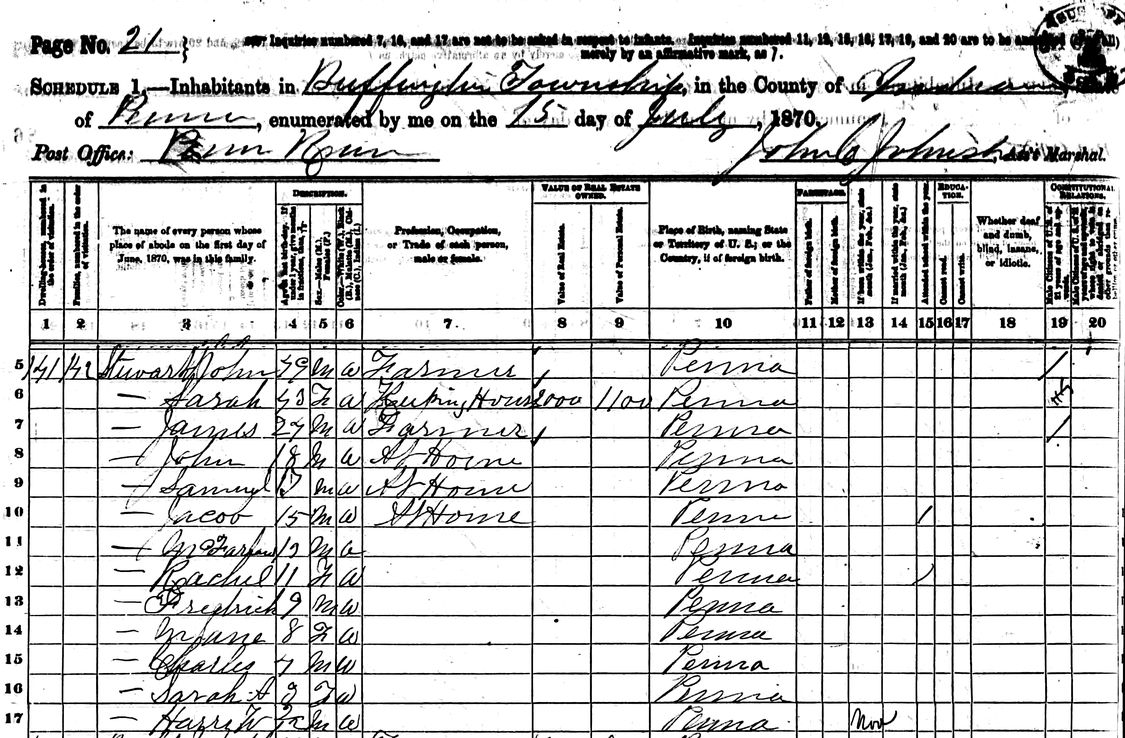 Page No. 21
Inquiries numbered 7, 16, and 17 are not to be asked in respect to infants. Inquiries numbered 11, 12, 15, 16, 17, 19, and 20 are to be answered (if at all)
merely by an affirmative mark, as /.
SCHEDULE 1.—Inhabitants in Buffington Township, in the County of Indiana, State
of Penna, enumerated by me on the 15 day of July, 1870.
Post Office: Penn Run
John C Johnston, Ass't Marshal.
DESCRIPTION. VALUE OF REAL ESTATE OWNED. PARENTAGE. EDUCATION. CONSTITUTIONAL RELATIONS.
Dwelling-houses, numbered in the order of visitation.
Families, numbered in the order of visitation.
The name of every person whose place of abode on the first day of June, 1870, was in this family.
Profession, Occupation, or Trade of each person, male or female.
Value of Real Estate.
Value of Personal Estate.
Place of Birth, naming State or Territory of U. S.; or the Country, if of foreign birth.
Father of foreign birth.
Mother of foreign birth.
If born within the year, state month (Jan., Feb., &c.)
If married within the year, state month (Jan., Feb., &c.)
Attended school within the year.
Cannot read.
Cannot write.
Whether deaf and dumb, blind, insane, or idiotic.
1 2 3 4 5 6 7 8 9 10 11 12 13 14 15 16 17 18 19 20
5 141 142 Stewart John 49 M W Farmer Penna /
6 — Sarah 43 F W Keeping House 2000 1100 Penna
7 — James 27 M W Farmer Penna /
8 — John 18 M W At Home Penna
9 — Samuel 17 M W At Home Penna
10 — Jacob 15 M W At Home Penna /
11 — McFarland M W Penna
12 — Rachel 11 F W Penna /
13 — Fredrick 9 M W Penna
14 — M Jane 8 F W Penna
15 — Charles 7 M W Penna
16 — Sarah A F W Penna
17 — Harry W M W Penna Nov